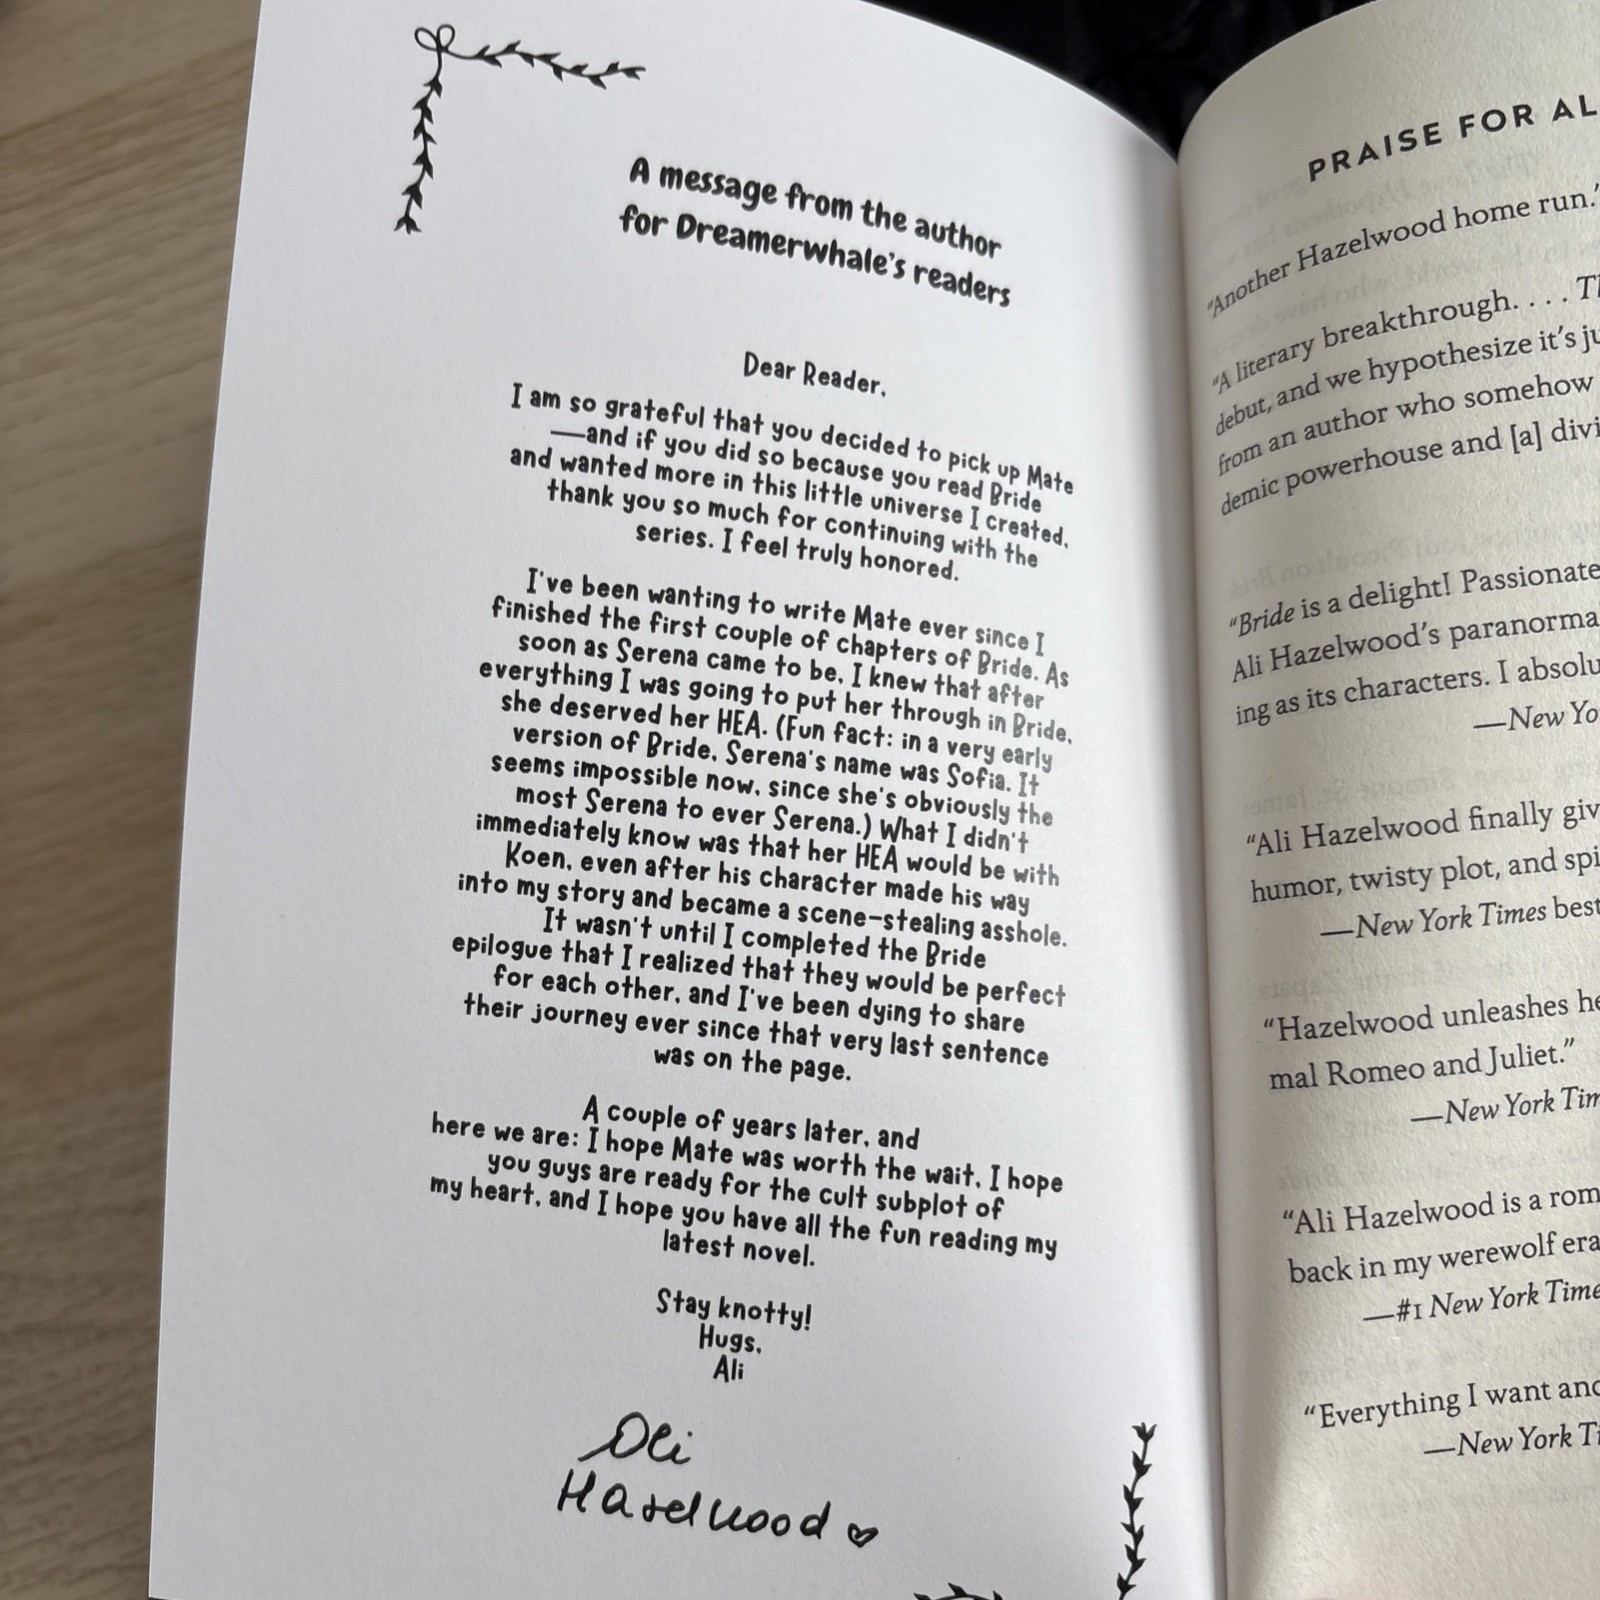 A message from the author
for Dreamerwhale's readers
Dear Reader,
I am so grateful that you decided to pick up Mate
—and if you did so because you read Bride
and wanted more in this little universe I created,
thank you so much for continuing with the
series. I feel truly honored.
I've been wanting to write Mate ever since I
finished the first couple of chapters of Bride. As
soon as Serena came to be, I knew that after
everything I was going to put her through in Bride,
she deserved her HEA. (Fun fact: in a very early
version of Bride, Serena's name was Sofia. It
seems impossible now, since she's obviously the
most Serena to ever Serena.) What I didn't
immediately know was that her HEA would be with
Koen, even after his character made his way
into my story and became a scene-stealing asshole.
It wasn't until I completed the Bride
epilogue that I realized that they would be perfect
for each other, and I've been dying to share
their journey ever since that very last sentence
was on the page.
A couple of years later, and
here we are: I hope Mate was worth the wait, I hope
you guys are ready for the cult subplot of
my heart, and I hope you have all the fun reading my
latest novel.
Stay knotty!
Hugs,
Ali
Ali
Hazelwood
PRAISE FOR AL
"Another Hazelwood home run."
"A literary breakthrough. . . . Th
debut, and we hypothesize it's ju
from an author who somehow
demic powerhouse and [a] divi
"Bride is a delight! Passionate
Ali Hazelwood's paranorma
ing as its characters. I absolu
—New Yo
"Ali Hazelwood finally giv
humor, twisty plot, and spi
—New York Times best
"Hazelwood unleashes he
mal Romeo and Juliet."
—New York Tim
"Ali Hazelwood is a rom
back in my werewolf era
—#1 New York Time
"Everything I want and
—New York Ti